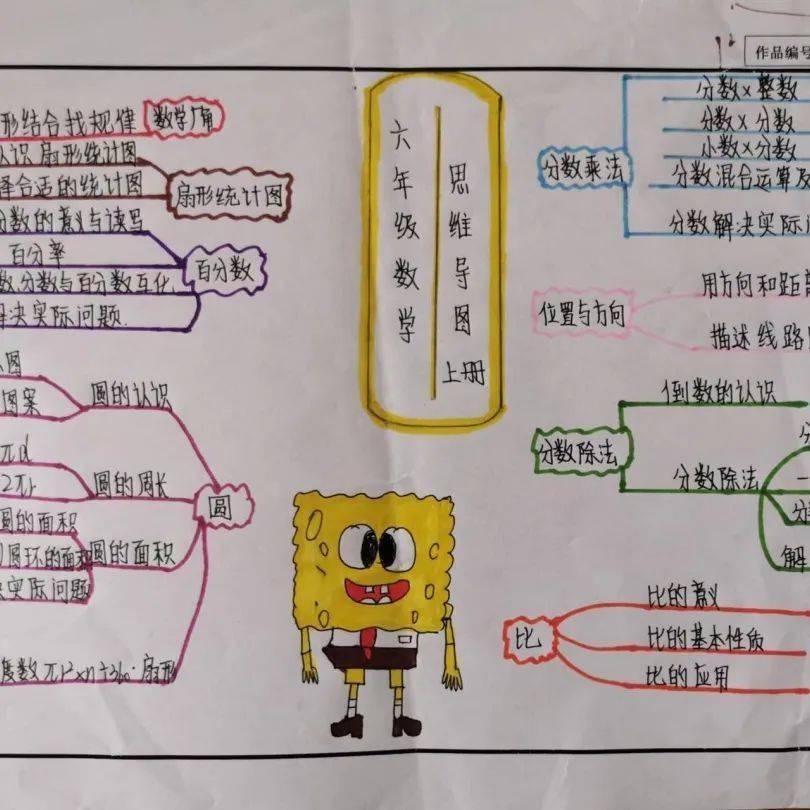 作品编号
六年级数学
思维导图
上册
形结合找规律
数学广角
认识扇形统计图
择合适的统计图
扇形统计图
分数的意义与读写
百分率
数,分数与百分数互化
解决实际问题.
百分数
图
图案
圆的认识
πd
2πr
圆的周长
圆的面积
圆环的面积
实际问题
圆的面积
度数πr²×n÷360·扇形
圆
分数乘法
分数×整数
分数×分数
小数×分数
分数混合运算及
分数解决实际问
位置与方向
用方向和距离
描述线路
分数除法
倒数的认识
分数除法
分
一
分
解
比
比的意义
比的基本性质
比的应用